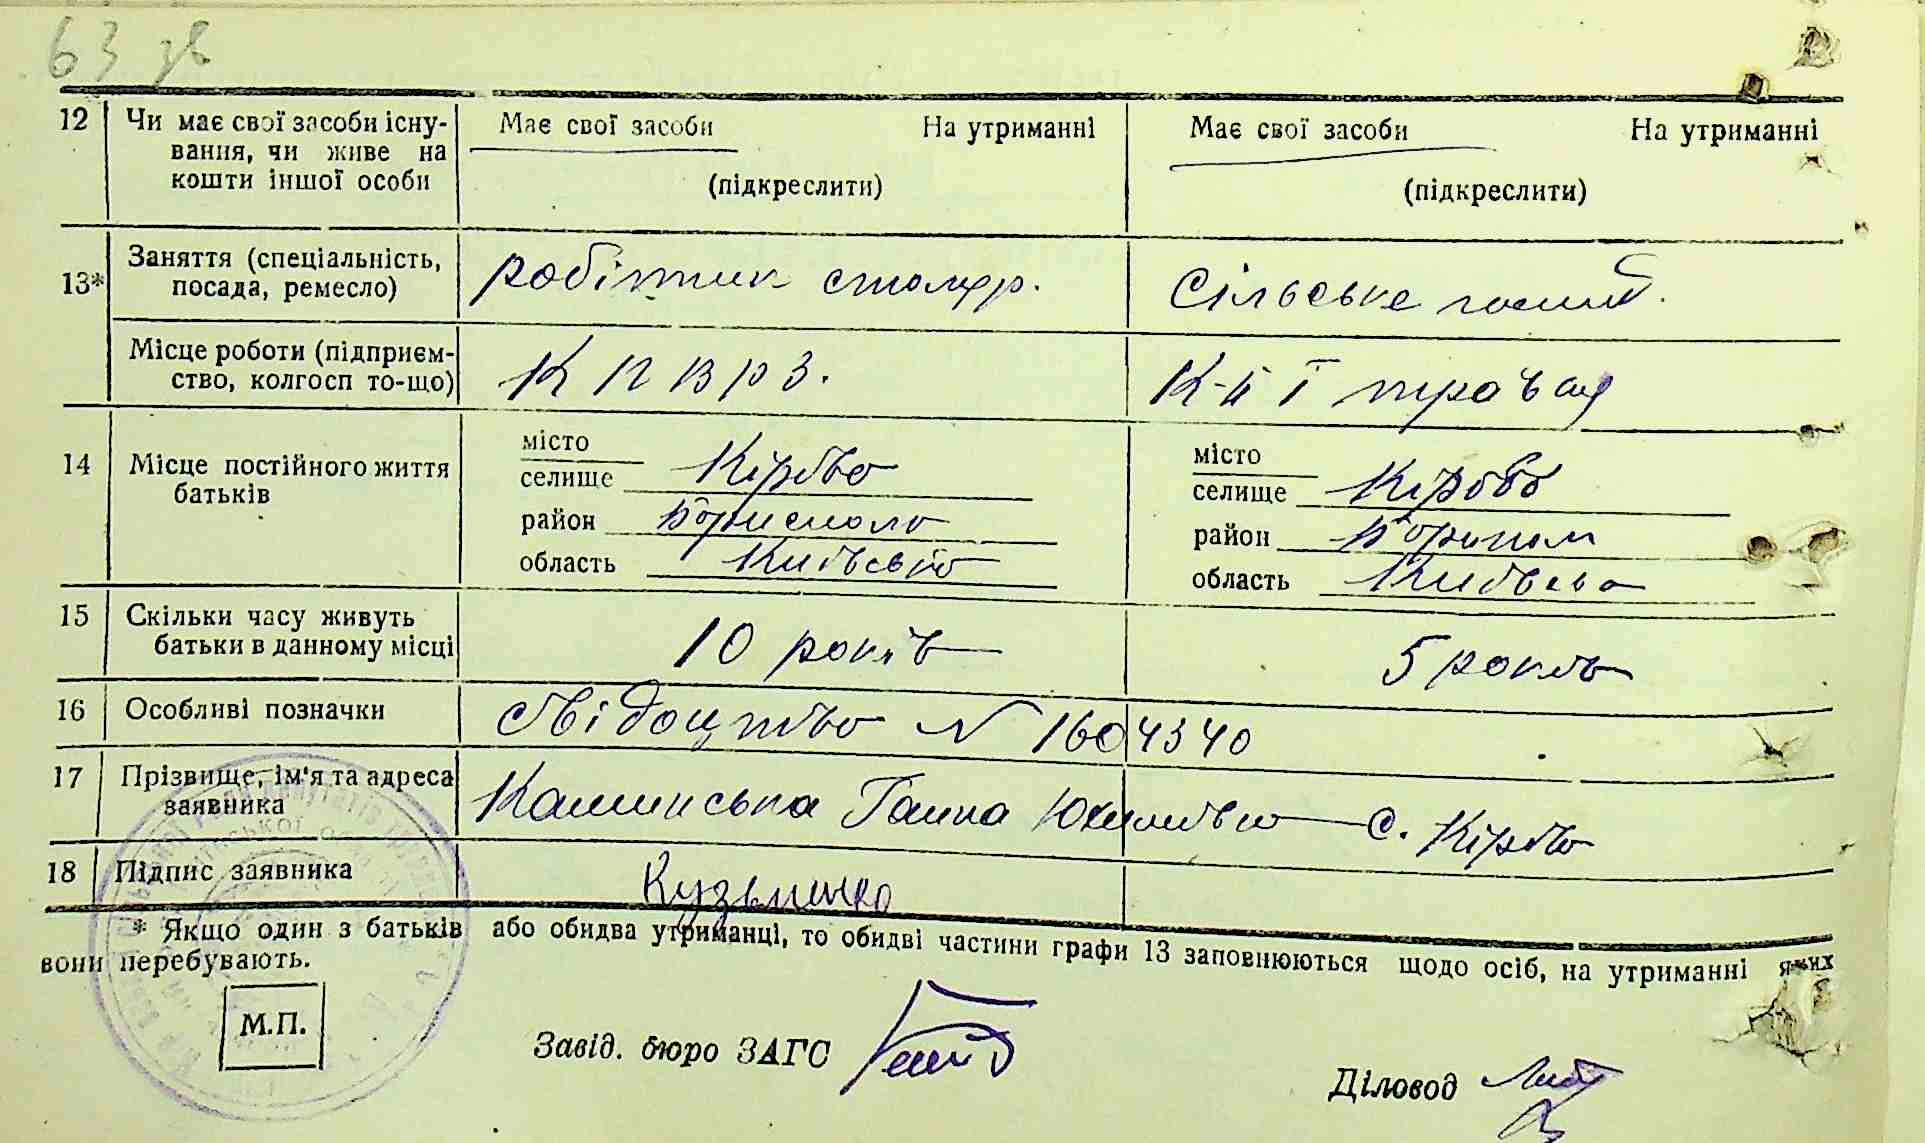 63 зв
12 Чи має свої засоби існу- Має свої засоби На утриманні Має свої засоби На утриманні
вання, чи живе на
кошти іншої особи (підкреслити) (підкреслити)
13* Заняття (спеціальність, робітник столяр. Сільське госп.
посада, ремесло)
Місце роботи (підприєм- К П В Р З. К-п І травня
ство, колгосп то-що)
14 Місце постійного життя місто місто
батьків селище Кірово селище Кірово
район Бориспол район
область Київсько область Київсько
15 Скільки часу живуть 10 років 5 років
батьки в данному місці
16 Особливі позначки свідоцтво N 1604340
17 Прізвище, ім'я та адреса Ганна Юхимівно с. Кірово
заявника
18 Підпис заявника Кузьменко
* Якщо один з батьків або обидва утриманці, то обидві частини графи 13 заповнюються щодо осіб, на утриманні яких
вони перебувають.
М.П.
Завід. бюро ЗАГС
Діловод